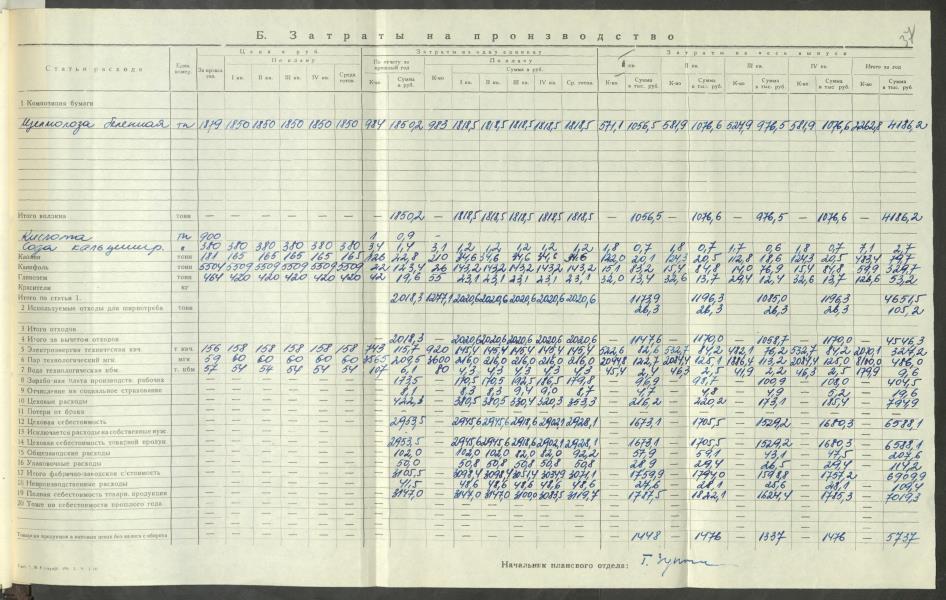 Б. Затраты на производство
Статьи расхода
Един. измер.
Цена в руб.
За прошл. год
По плану
I кв. II кв. III кв. IV кв. Средн. годов.
Затраты на одну единицу
По отчету за прошлый год
К-во Сумма в руб.
По плану
К-во Сумма в руб.
I кв. II кв. III кв. IV кв. Ср. годов.
Затраты на весь выпуск
I кв. II кв. III кв. IV кв. Итого за год
К-во Сумма в тыс. руб. К-во Сумма в тыс. руб. К-во Сумма в тыс. руб. К-во Сумма в тыс. руб. К-во Сумма в тыс. руб.
1 Композиция бумаги
Целлюлоза беленая тн 1879 1850 1850 1850 1850 1850 984 1850,2 983 1818,5 1818,5 1818,5 1818,5 1818,5 571,1 1056,5 581,9 1076,6 527,9 976,5 581,9 1076,6 2262,8 4186,2
Итого волокна тонн — — — — — — — 1850,2 — 1818,5 1818,5 1818,5 1818,5 1818,5 — 1056,5 — 1076,6 — 976,5 — 1076,6 — 4186,2
Кислота тн 900 1 0,9 —
Сода кальцинир. 380 380 380 380 380 380 3,4 1,4 3,1 1,2 1,2 1,2 1,2 1,2 1,8 0,7 1,8 0,7 1,7 0,6 1,8 0,7 7,1 2,7
Каолин тонн 181 165 165 165 165 165 126 22,8 210 34,6 34,6 34,6 34,6 34,6 122,0 20,1 124,3 20,5 112,8 18,6 124,3 20,5 483,4 79,7
Канифоль тонн 5504 5509 5509 5509 5509 5509 22 123,4 26 143,2 143,2 143,2 143,2 143,2 15,1 83,2 15,4 84,8 14,0 76,9 15,4 84,8 59,9 329,7
Глинозем тонн 464 420 420 420 420 420 42 19,6 55 23,1 23,1 23,1 23,1 23,1 32,0 13,4 32,6 13,7 29,4 12,4 32,6 13,7 126,6 53,2
Красители кг
Итого по статье 1. 2018,3 1277,1 2020,6 2020,6 2020,6 2020,6 2020,6 1173,9 1196,3 1085,0 1196,3 4651,5
2 Используемые отходы для ширпотреба тонн 26,3 26,3 26,3 26,3 105,2
3 Итого отходов
4 Итого за вычетом отходов 2018,3 — 2020,6 2020,6 2020,6 2020,6 2020,6 — 1147,6 — 1170,0 — 1058,7 — 1170,0 — 4546,3
5 Электроэнергия техническая квч. т квч. 156 158 158 158 158 158 743 115,7 920 145,4 145,4 145,4 145,4 145,4 522,6 82,6 532,7 84,2 482,1 76,2 532,7 84,2 2070,1 327,2
6 Пар технологический мгк. мгк 59 60 60 60 60 60 3565 209,5 3600 216,0 216,0 216,0 216,0 216,0
7 Вода технологическая кбм. т. кбм 57 54 54 54 54 54 107 6,1 80 4,3 4,3 4,3 4,3 4,3 45,4 2,4 46,3 2,5 41,9 2,2 46,3 2,5 179,9 9,6
8 Заработная плата производств. рабочих 173,5 — 170,5 170,5 192,5 186,5 179,8 — 96,9 — 98,7 — 100,9 — 108,0 — 404,5
9 Отчисление на социальное страхование 8,3 8,3 9,4 9,0 8,7 4,7 4,8 4,9 5,2 19,6
10 Цеховые расходы
11 Потери от брака
12 Цеховая себестоимость 2953,5 — 1673,1 — 1705,5 — 1529,2 — 1680,3 — 6588,1
13 Исключается расходы на собственные нуж.
14 Цеховая себестоимость товарной продук. 2953,5 — 1673,1 — 1705,5 — 1529,2 — 1680,3 — 6588,1
15 Общезаводские расходы 102,0 — 102,0 102,0 82,0 82,0 92,2 — 57,9 — 59,1 — 43,1 — 47,5 — 207,6
16 Упаковочные расходы 50,0 — 50,8 50,8 50,8 50,8 50,8 — 28,9 — 29,4 — 26,5 — 29,4 — 114,2
17 Итого фабрично-заводская с/стоимость 3105,5 — 1759,9 — 1794,0 — 1598,8 — 1757,2 — 6909,9
18 Непроизводственные расходы 41,5 — 48,6 48,6 48,6 48,6 48,6
19 Полная себестоимость товарн. продукции 3147,0 — 3147,0 3147,0 — 1787,5 — 1822,1 — 1624,4 — 1785,3 — 7019,3
20 Тоже по себестоимости прошлого года
Товарная продукция в оптовых ценах без налога с оборота — 1448 — 1476 — 1337 — 1476 — 5737
Начальник планского отдела: